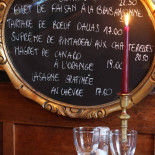 FILET DE FAISAN À LA BRABANÇONNE 20.50
TARTARE DE BOEUF DALLAS 17.00
SUPRÊME DE PINTADEAU AUX CHA TERELLES
MAGRET DE CANARD 20.50
À L'ORANGE 19.00
LASAGNE GRATINÉE
AU CHÈVRE 17.00